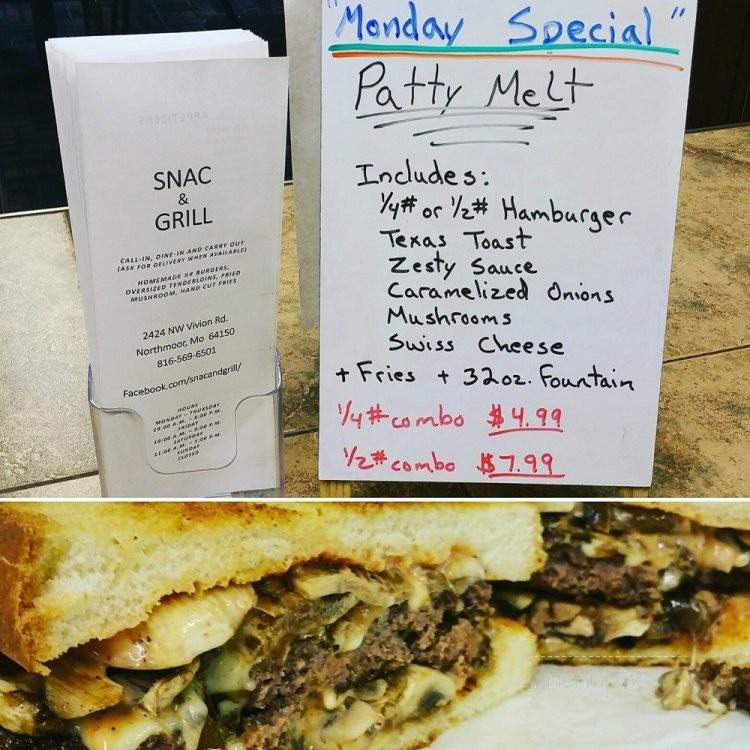 SNAC
&
GRILL
CALL-IN, DINE-IN AND CARRY OUT
(ASK FOR DELIVERY WHEN AVAILABLE)
HOMEMADE ½# BURGERS,
OVERSIZED TENDERLOINS, FRIED
MUSHROOM, HAND CUT FRIES
2424 NW Vivion Rd.
Northmoor, Mo 64150
816-569-6501
Facebook.com/snacandgrill/
HOURS
MONDAY – THURSDAY
10:00 A.M. – 6:00 P.M.
FRIDAY
10:00 A.M. – 8:00 P.M.
SATURDAY
11:00 A.M. – 5:00 P.M.
SUNDAY
CLOSED
"Monday Special"
Patty Melt
Includes:
1/4# or 1/2# Hamburger
Texas Toast
Zesty Sauce
Caramelized Onions
Mushrooms
Swiss Cheese
+ Fries + 32oz. Fountain
1/4# combo $4.99
1/2# combo $7.99